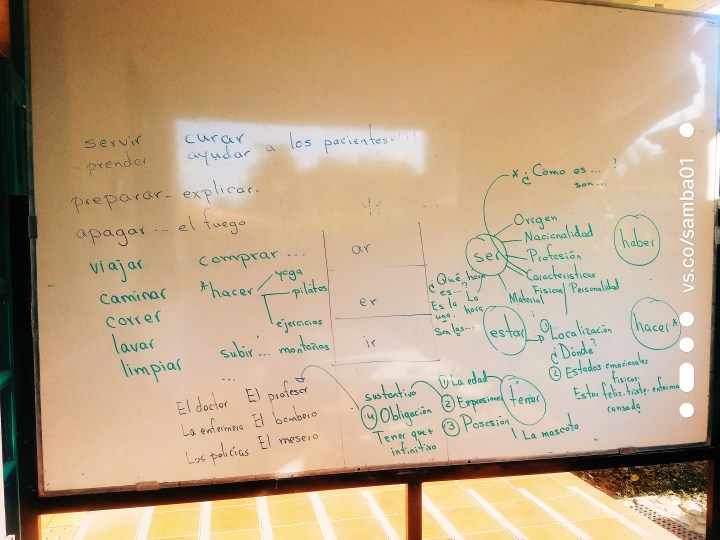 servir curar
prender ayudar a los pacientes
preparar - explicar.
apagar ... el fuego
viajar
caminar
correr
lavar
limpiar
comprar ...
*hacer
yoga
pilates
ejercicios
subir ... montañas
...
El doctor El profesor
La enfermera El bombero
Los policías El mesero
ar
er
ir
* ¿Cómo es ... ?
son ...
ser
Origen
Nacionalidad
Profesión
Caracteristicas
Fisicas Personalidad
Material
La hora
¿Qué hora es...?
Es la una.
Son las...
haber
estar
① Localización
¿Dónde?
② Estados emocionales
físicos.
Estar feliz-triste-enferma
cansada
hacer*
tener
① La edad
② Expresiones
sustantivo
③ Posesión
La mascota
④ Obligación
Tener que +
infinitivo
vs.co/samba01